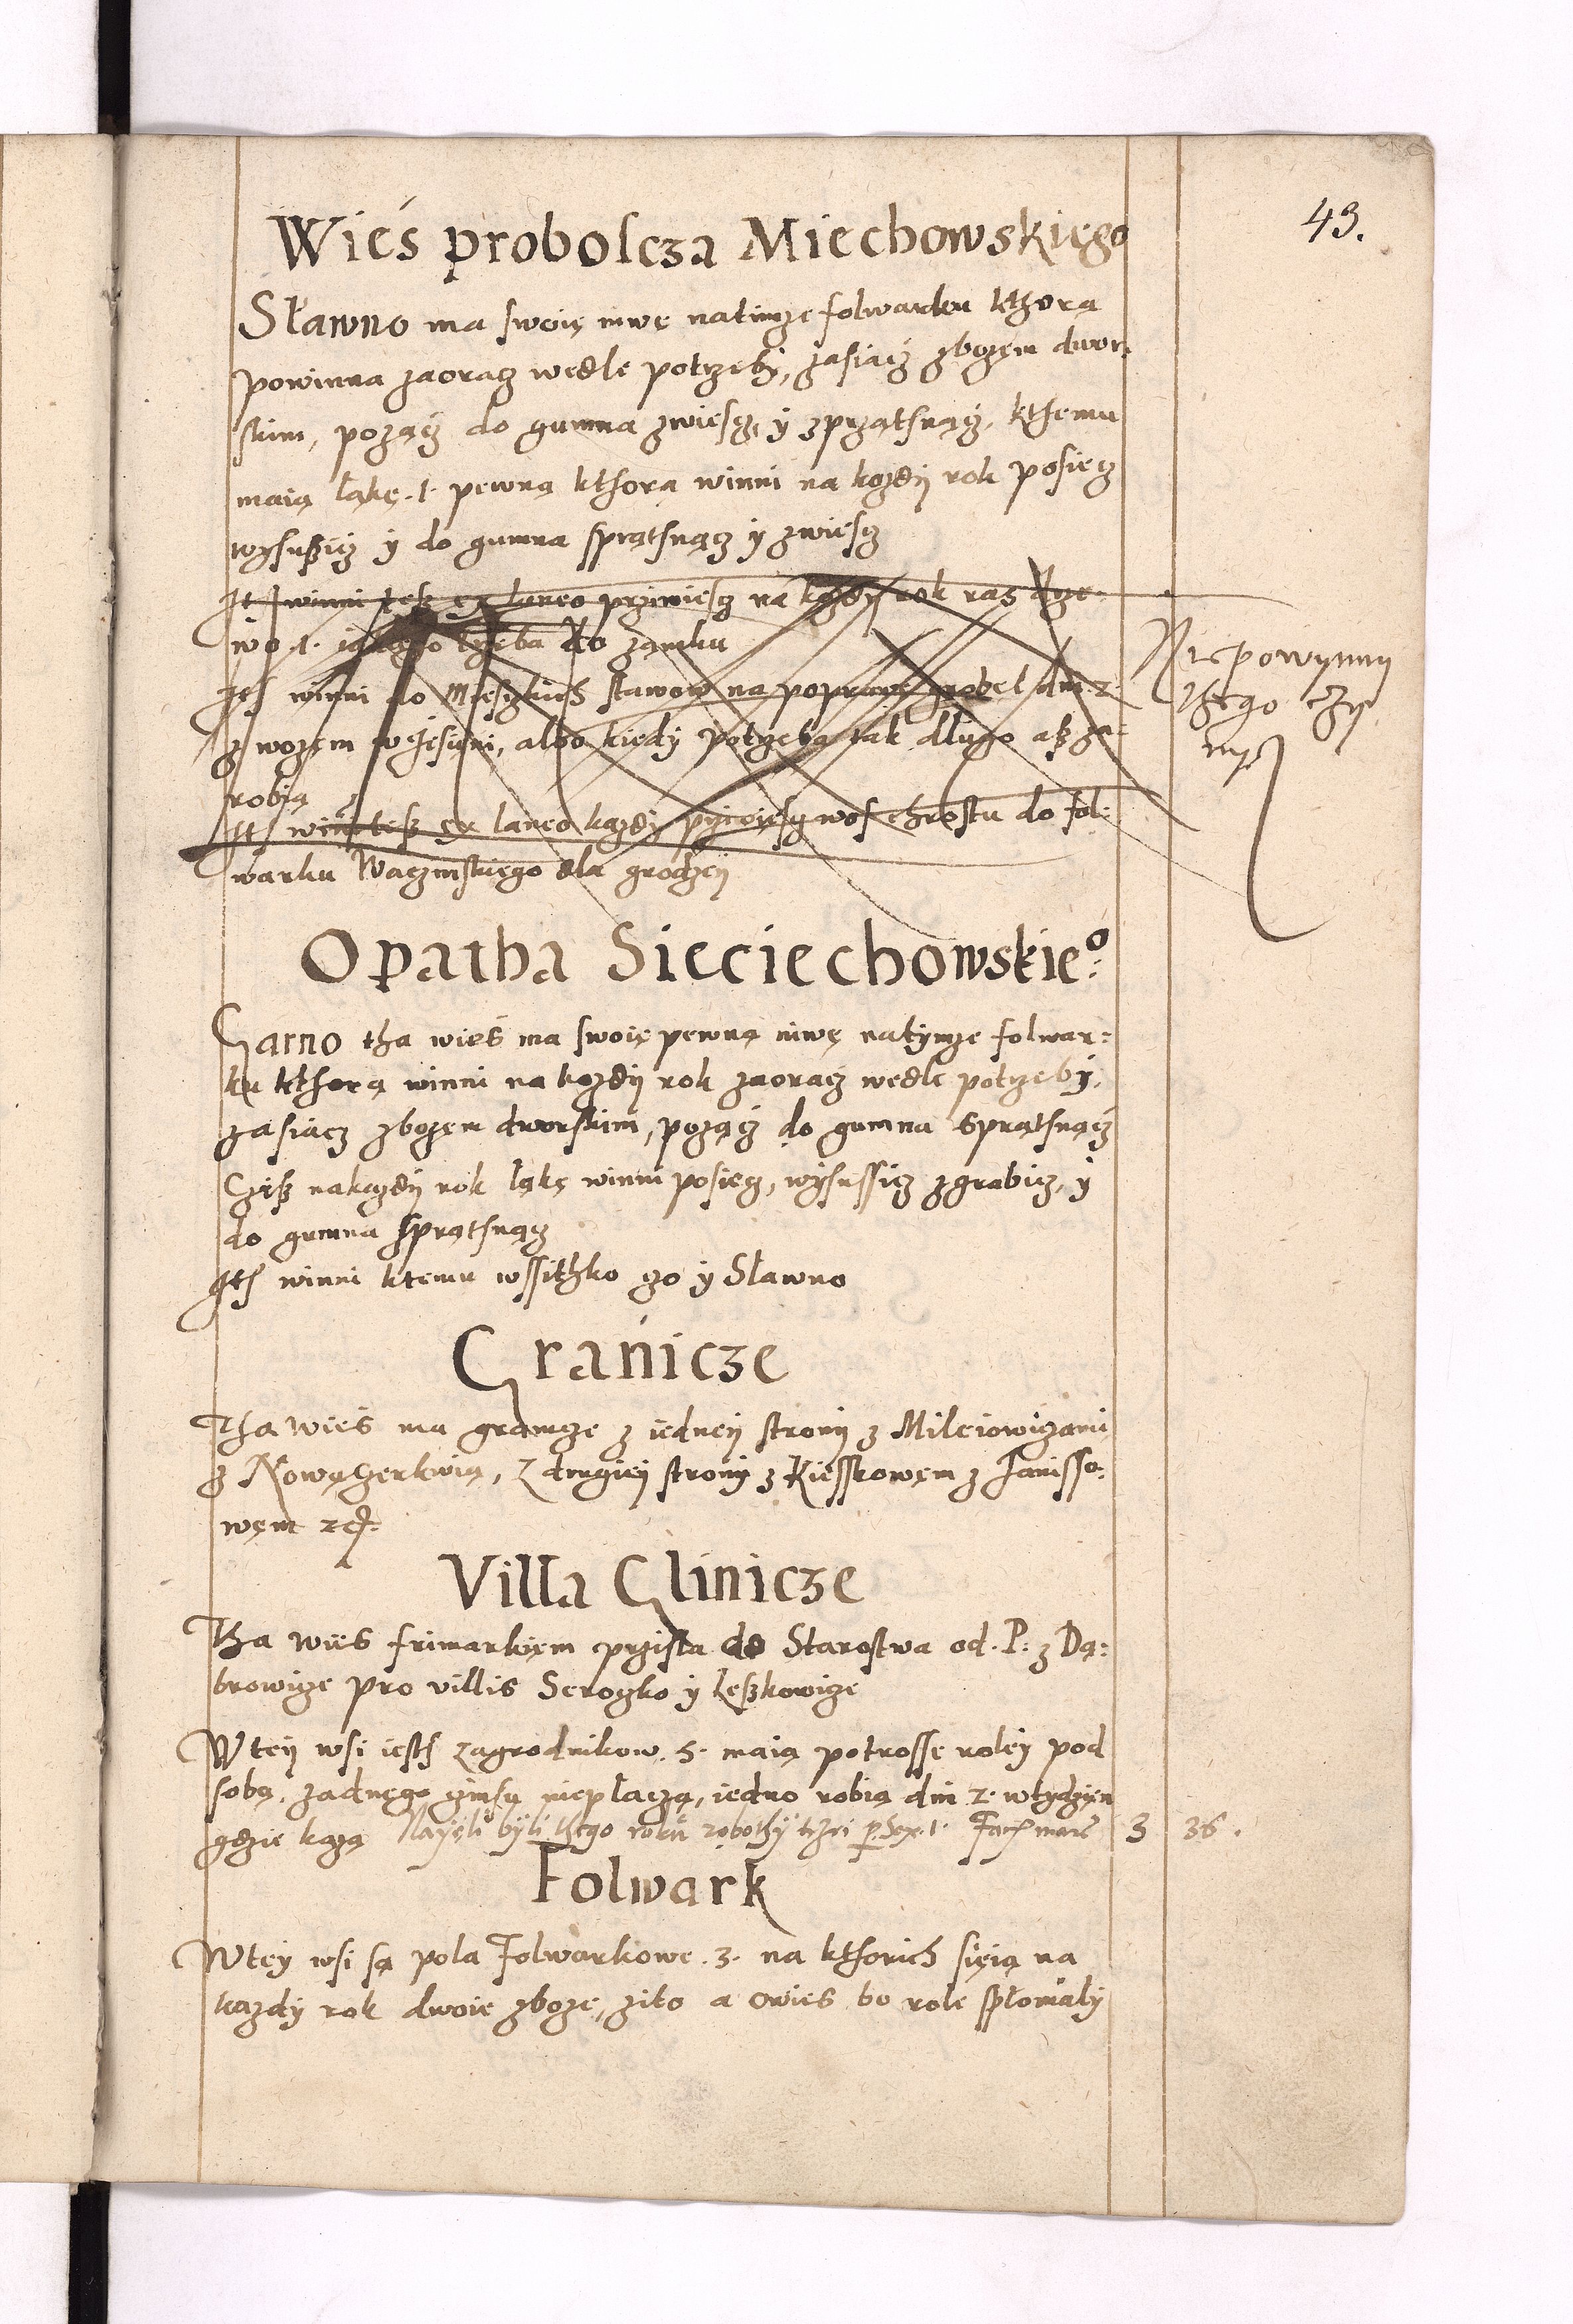 43.
Wieś probolcza Miechowskięgo
Sławno ma swoię niwę natimze folwarku kthorą
powinna zaoracz wedle potrzeby, zasiacz zbozem dwor:
skim, pozącz do gumna zwiescz, y zprzathnącz, kthemu
maią łąkę .1. pewną kthorą winni na kozdy rok posiecz
wysuszicz y do gumna sprzathnącz y zwiescz
It winni tesz ex laneo przwiescz na kozdy rok raz drze
wo .1. iakiego trzeba do zamku
Ith winni do Mieszkich stawow na poprawę grobel dni .2.
z wozem w Jesieni, albo kiedy potrzeba tak dlugo asz za:
robią
Ith winni tesz ex laneo kazdy przywiescz wos chrostu do fol:
warku Waczinskiego dla grodzey
Nie powynny
thego czy
nycz
Opatha Sieciechowskie°:
Garno tha wieś ma swoię pewną niwę natymze folwar:
ku kthorą winni na kozdy rok zaoracz wedle potrzeby,
zasiacz zbozem dworskim, pozącz do gumna sprzathnącz
Czisz nakazdy rok łąkę winni posiecz, wysussicz zgrabicz, y
do gumna sprzathnącz
Ith winni ktemu wssithko czo y Sławno
Granicze
Tha wieś ma granicze z iedney strony z Mileiowiczami
z Nową Czerkwią, z drugiey strony z Kiesskowem z Janisso:
wem etc.
Villa Glinicze
Tha wies frimarkięm przisła do Starostwa od .P. z Dą:
browicze pro villis Seroczko y Leszkowicze
Wtey wsi iesth zagrodnikow .5. maią potrosse roley pod
sobą, zadnęgo czinsu niepłaczą, iedno robią dni 2. wtydzięn
gdzie każą Nayęli byli thego roku robothy tzrei p. sex. 1. Fac. marc 3 36.
Folwark
Wtey wsi są pola Folwarkowe .3. na kthorich sieią na
kazdy rok dwoie zboze, zito a owies bo role spłoniały